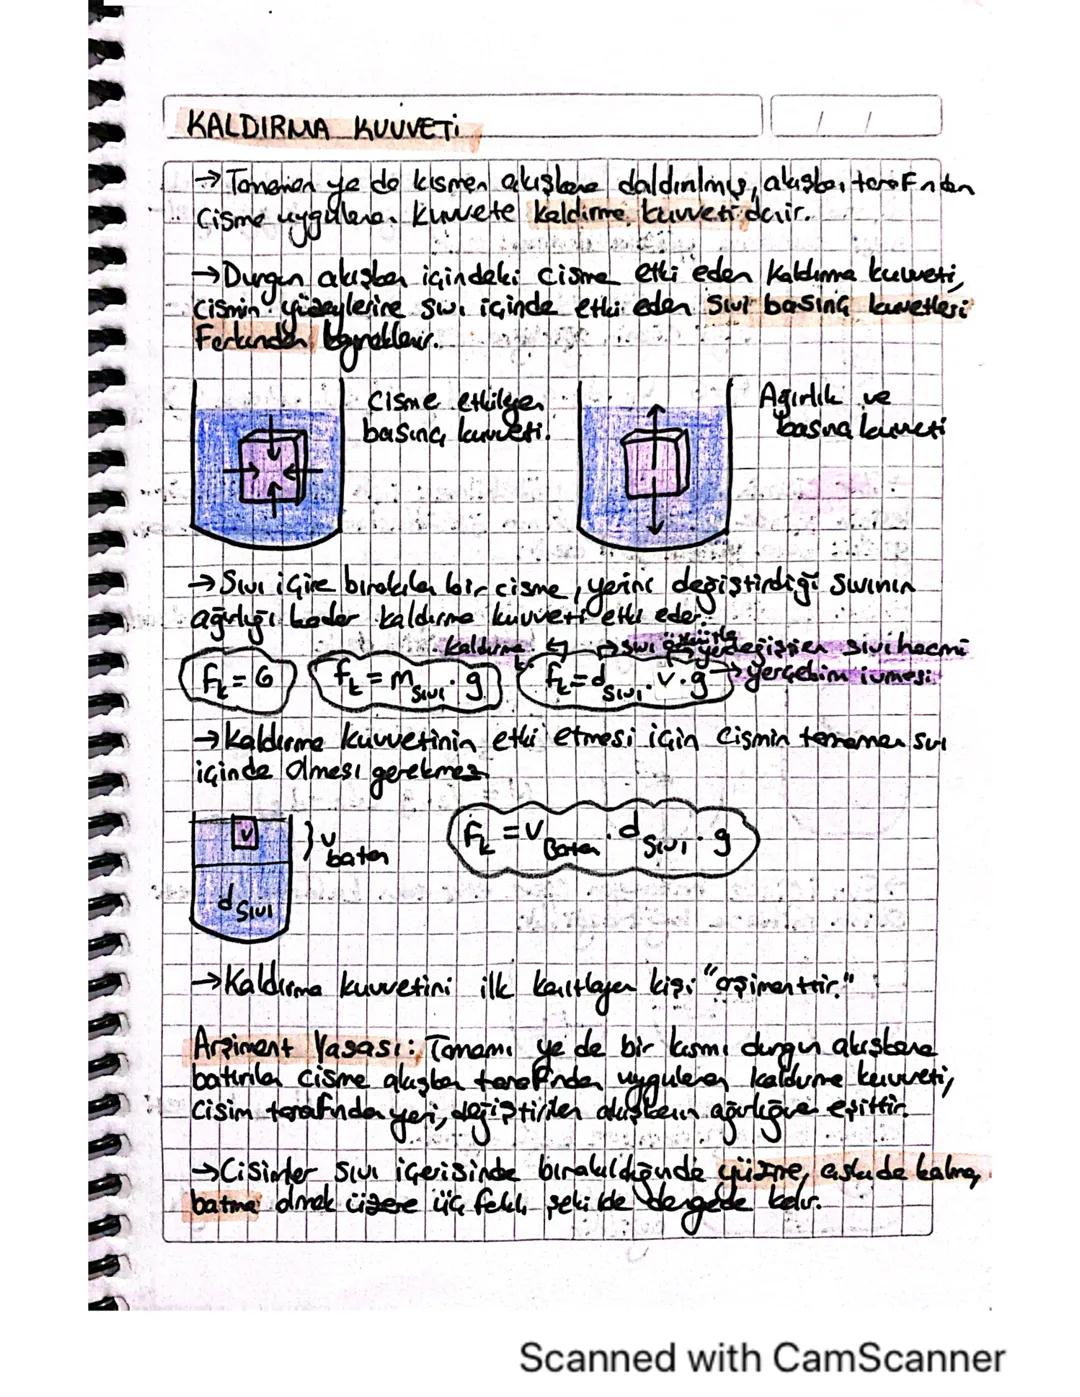 KALDIRMA KUVVETİ
→ Tamamen ya da kısmen akışkana daldırılmış, akışkan tarafından
cisme uygulanan kuvvete kaldırma kuvveti denir.
→ Durgun akışkan içindeki cisme etki eden kaldırma kuvveti,
cismin yüzeylerine sıvı içinde etki eden sıvı basınç kuvvetleri
farkından kaynaklanır.
Cisme etkilyen
basınç kuvveti.
Ağırlık ve
basınç kuvveti
→ Sıvı içine bırakılan bir cisme, yerini değiştirdiği sıvının
ağırlığı kadar kaldırma kuvveti etki eder.
kaldırma sıvı yer değişen sıvı hacmi
Fk = G Fk = m sıvı . g Fk = d sıvı . v . g → yerçekim ivmesi
→ Kaldırma kuvvetinin etki etmesi için cismin tamamen sıvı
içinde olması gerekmez
v } v batan
Fk = v Batan . d sıvı . g
d sıvı
→ Kaldırma kuvvetini ilk kanıtlayan kişi "arşimenttir."
Arşiment Yasası: Tamamı ya da bir kısmı durgun akışkana
batırılan cisme akışkan tarafından uygulanan kaldırma kuvveti,
cisim tarafından yeri, değiştirilen akışkanın ağırlığına eşittir.
→ Cisimler sıvı içerisinde bırakıldığında yüzme, askıda kalma,
batma olmak üzere üç farklı şekilde dengede kalır.
Scanned with CamScanner